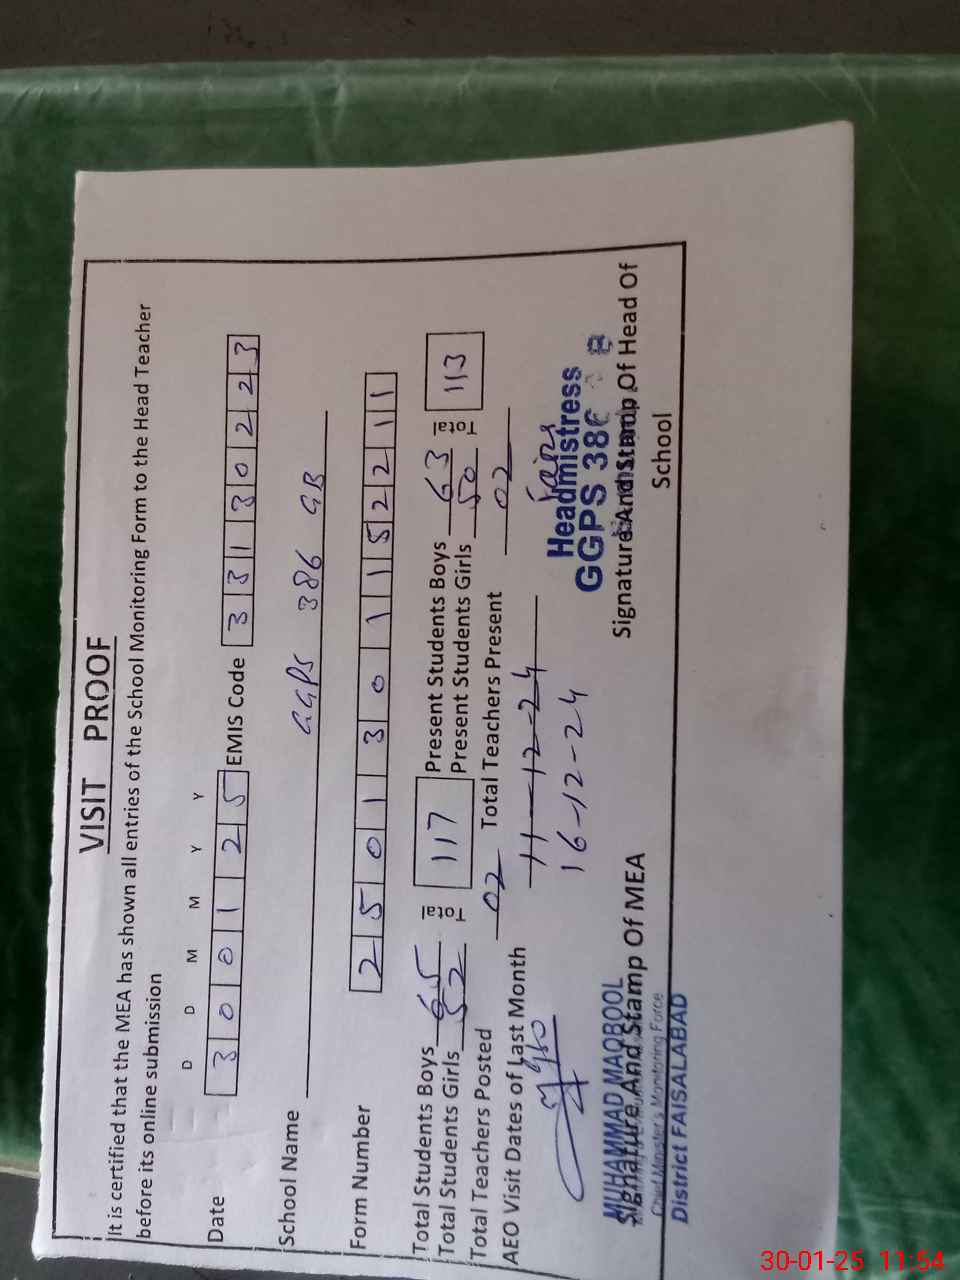 VISIT PROOF
It is certified that the MEA has shown all entries of the School Monitoring Form to the Head Teacher
before its online submission
D D M M Y Y
Date 3 0 0 1 2 5 EMIS Code 3 3 1 3 0 2 2 3
School Name GGPS 386 GB
Form Number 2 5 0 1 3 0 1 1 5 2 2 1 1
Total Students Boys 65 Total 117 Present Students Boys 63 Total 113
Total Students Girls 52 Present Students Girls 50
Total Teachers Posted 02 Total Teachers Present 02
AEO Visit Dates of Last Month 11-12-24
16-12-24
Headmistress
GGPS 386
MUHAMMAD MAQBOOL
Signature And Stamp Of MEA Signature And Stamp Of Head Of
School
Chief Minister's Monitoring Force
District FAISALABAD
30-01-25 11:54